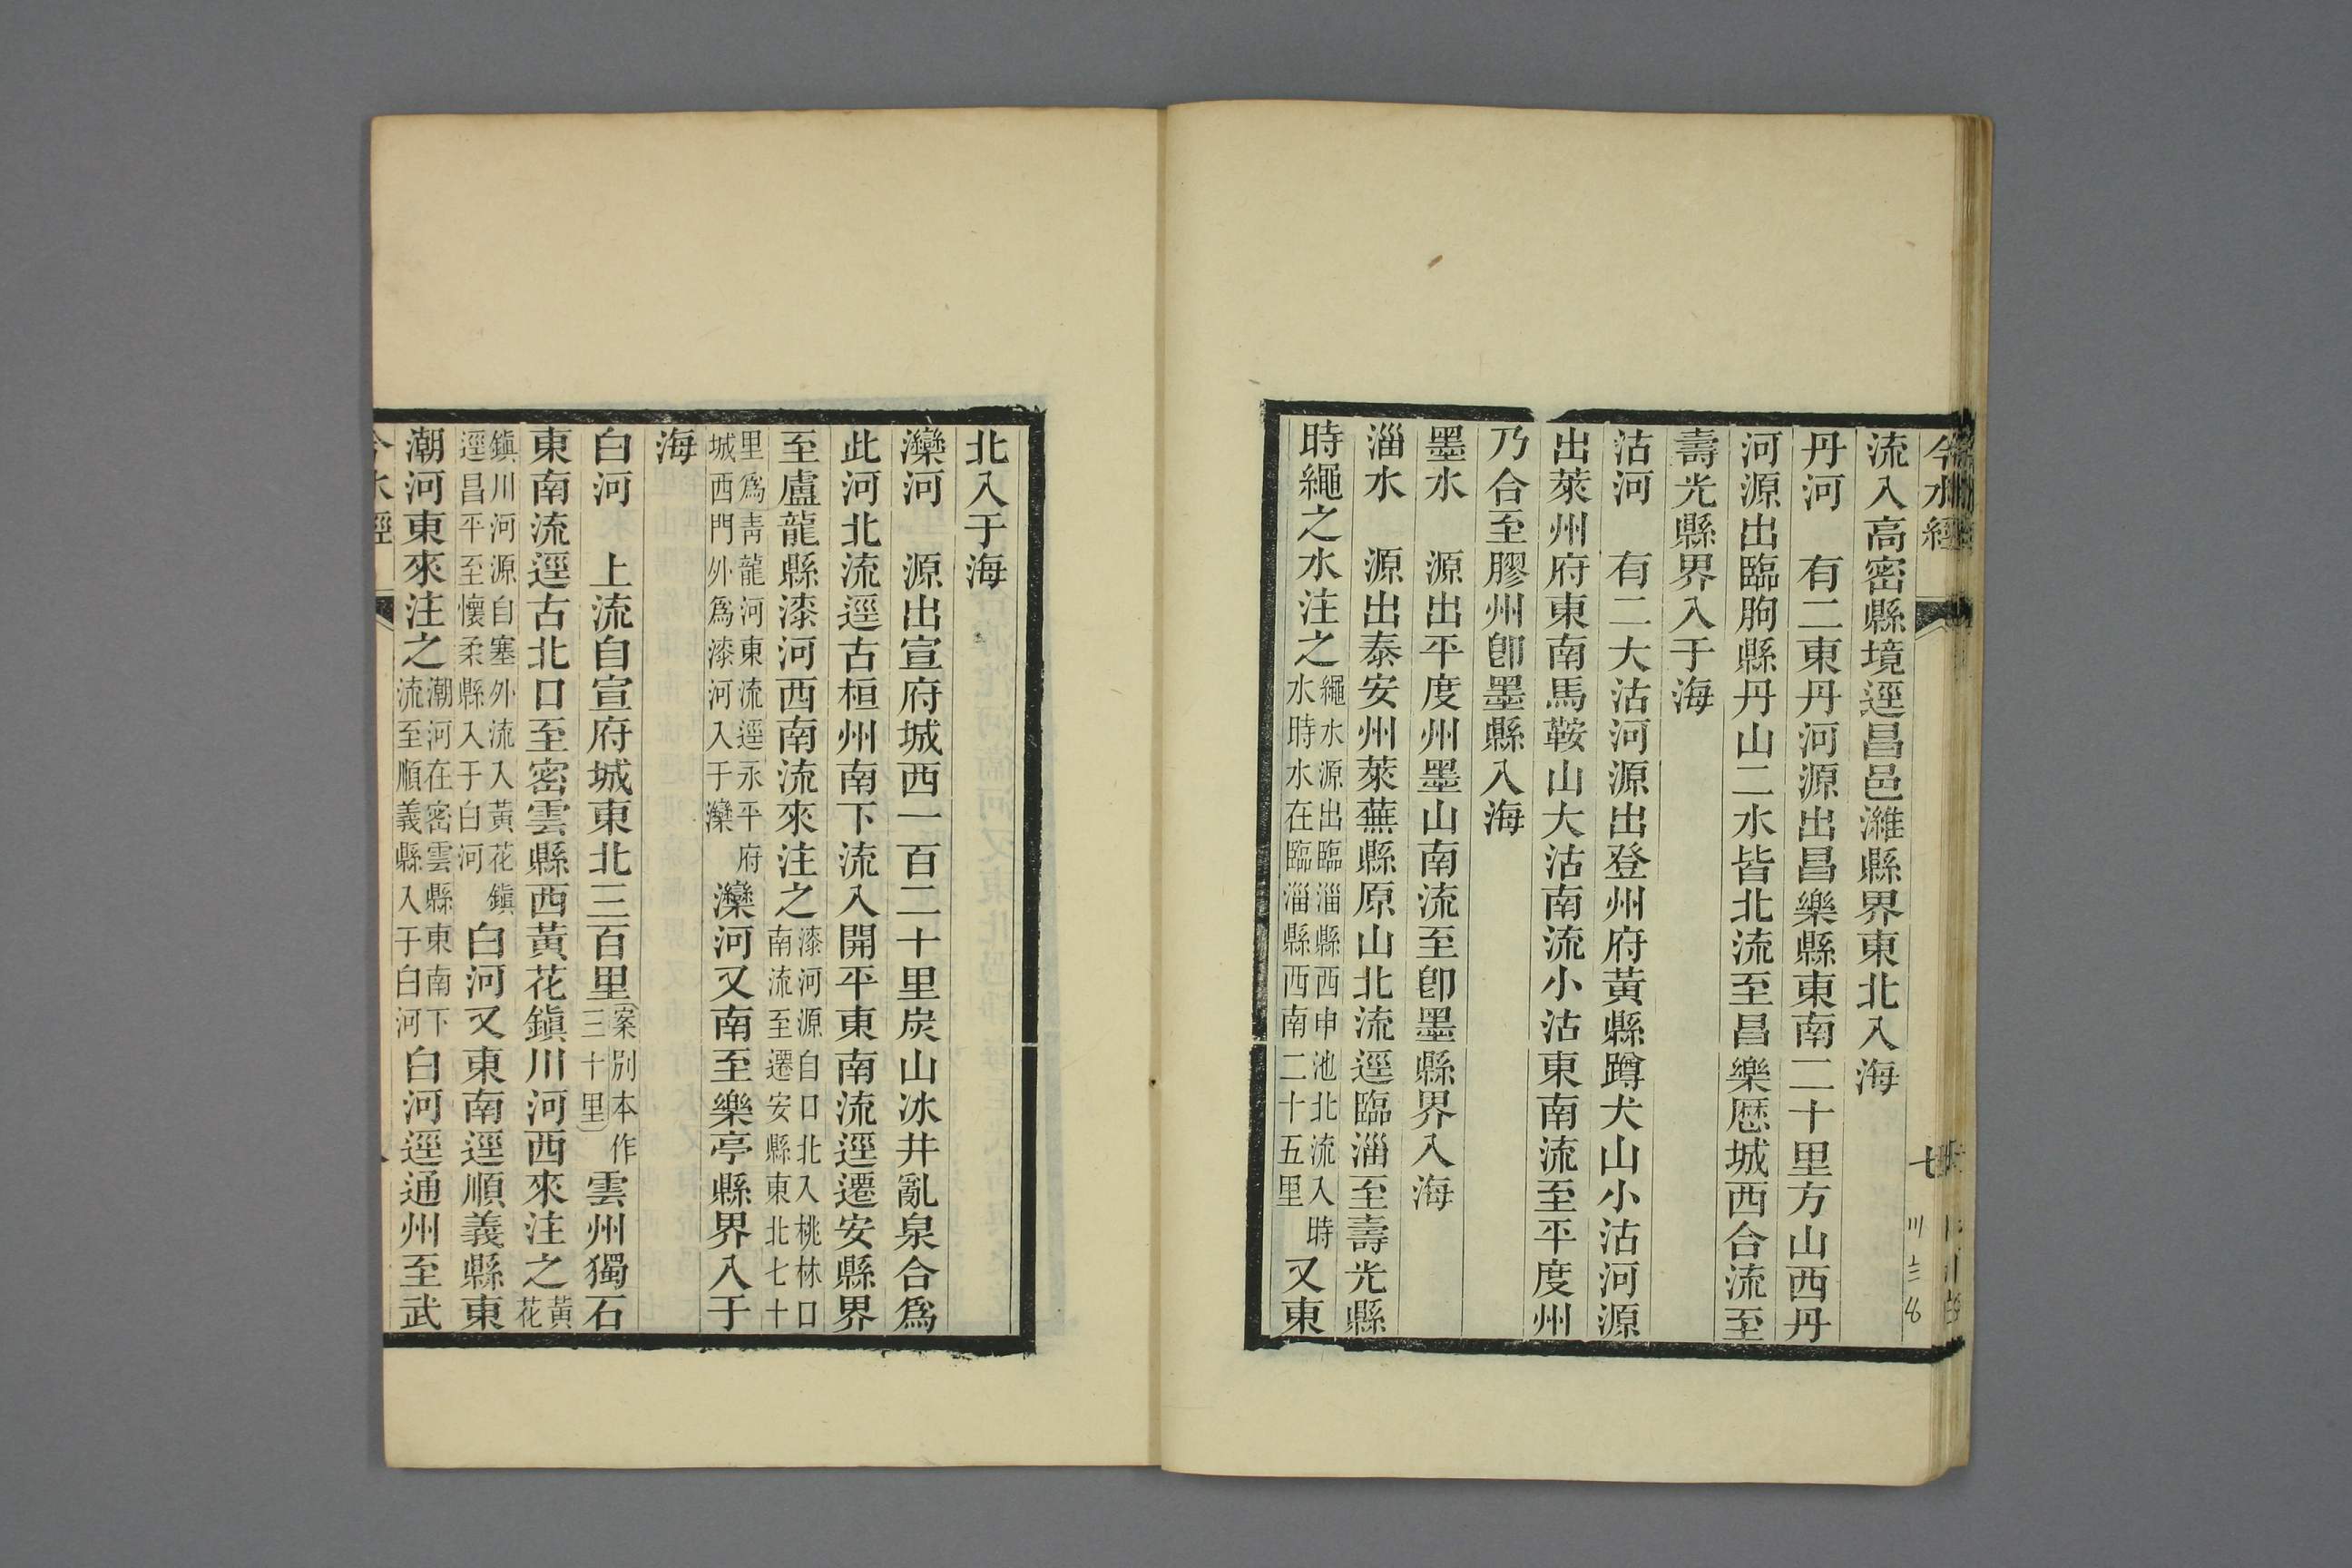 今水經
七
流入高密縣境逕昌邑濰縣界東北入海
丹河　有二東丹河源出昌樂縣東南二十里方山西丹
河源出臨朐縣丹山二水皆北流至昌樂厯城西合流至
壽光縣界入于海
沽河　有二大沽河源出登州府黃縣蹲犬山小沽河源
出萊州府東南馬鞍山大沽南流小沽東南流至平度州
乃合至膠州卽墨縣入海
墨水　源出平度州墨山南流至卽墨縣界入海
淄水　源出泰安州萊蕪縣原山北流逕臨淄至壽光縣
時繩之水注之繩水源出臨淄縣西申池北流入時水時水在臨淄縣西南二十五里又東
北入于海
灤河　源出宣府城西一百二十里炭山冰井亂泉合爲
此河北流逕古桓州南下流入開平東南流逕遷安縣界
至盧龍縣漆河西南流來注之漆河源自口北入桃林口南流至遷安縣東北七十
里爲靑龍河東流逕永平府城西門外爲漆河入于灤灤河又南至樂亭縣界入于
海
白河　上流自宣府城東北三百里（案別本作三十里）雲州獨石
東南流逕古北口至密雲縣西黃花鎭川河西來注之黃花
鎭川河源自塞外流入黃花鎭逕昌平至懷柔縣入于白河白河又東南逕順義縣東
潮河東來注之潮河在密雲縣東南下流至順義縣入于白河白河逕通州至武
今水經